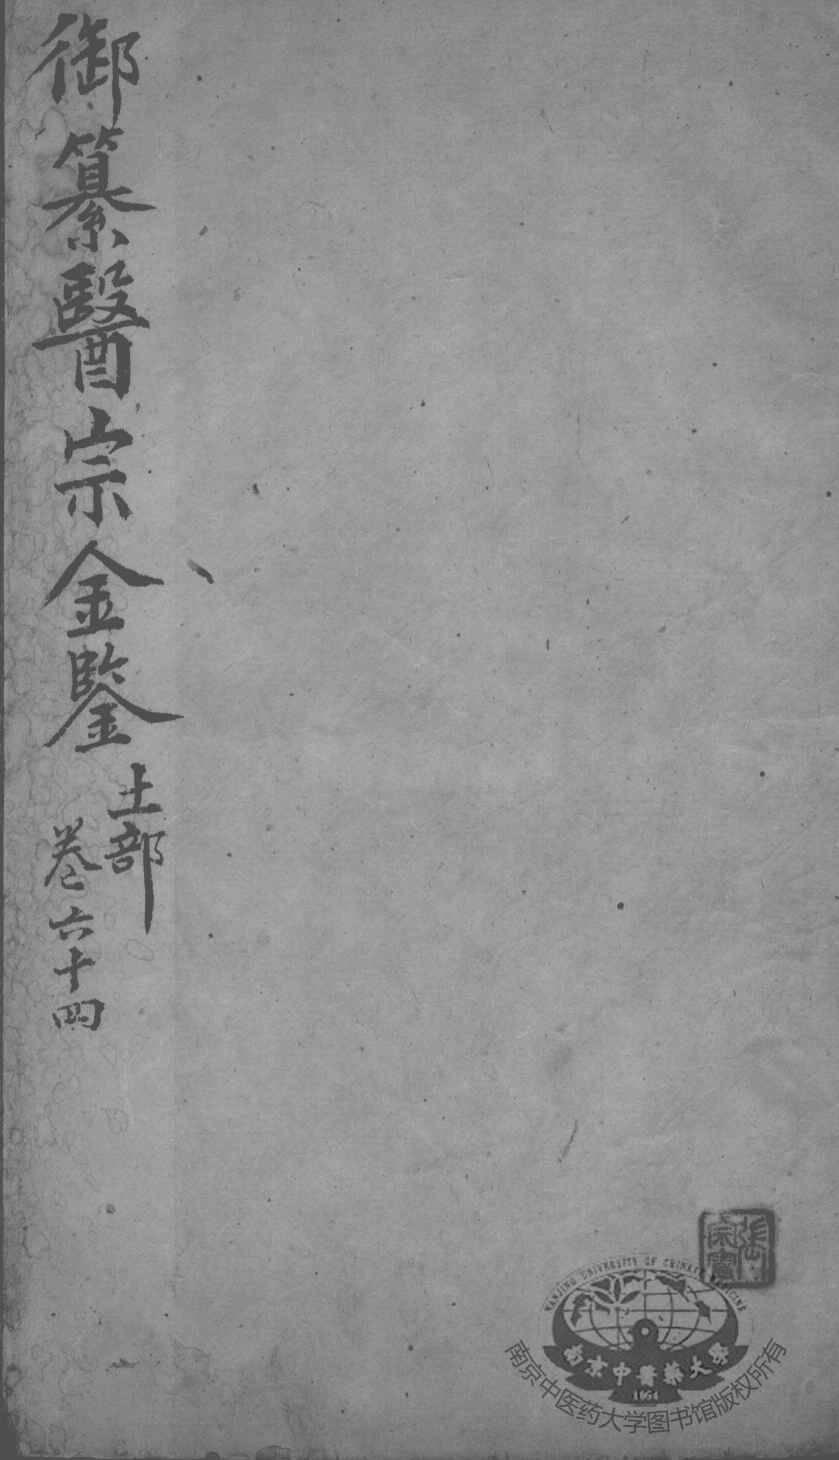 御纂醫宗金鑒
土部
卷六十四
NANJING UNIVERSITY OF CHINESE MEDICINE
南京中醫藥大學
1954
南京中医药大学图书馆版权所有